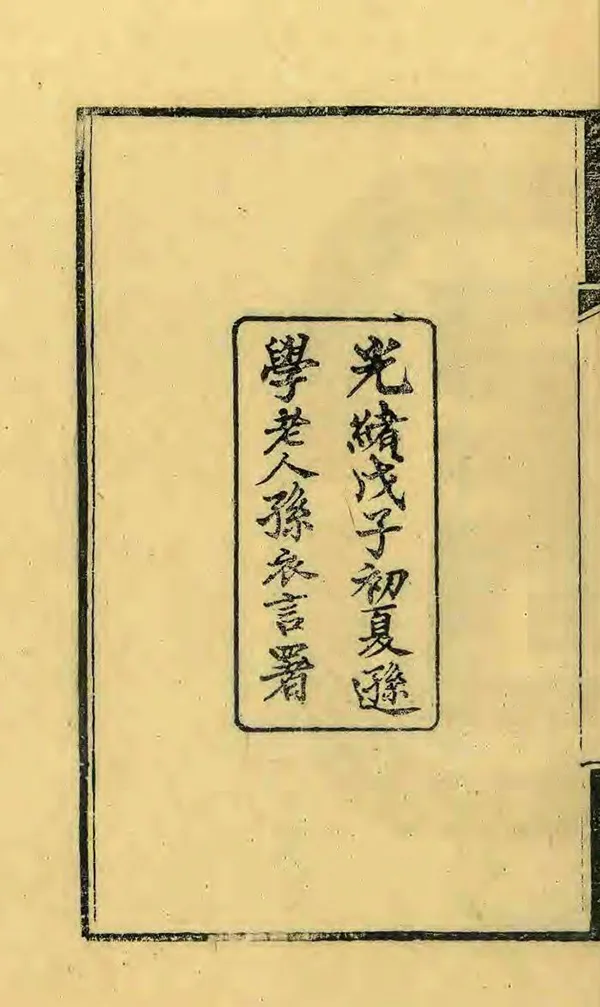 光緒戊子初夏遜
學老人孫衣言署